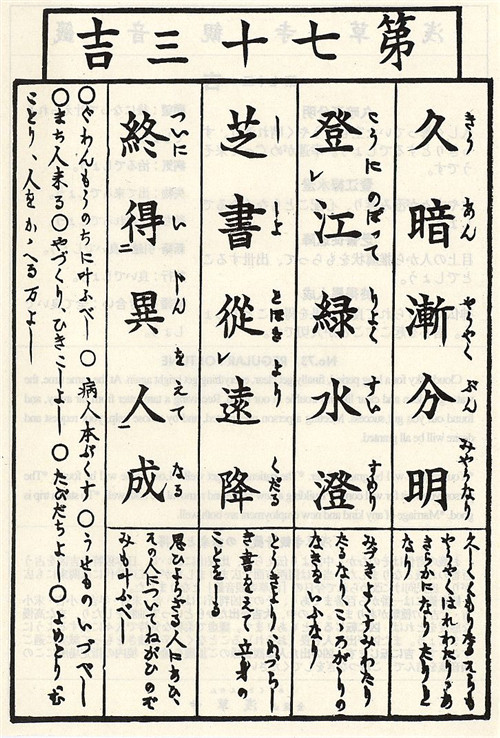 第七十三吉
久暗漸分明
きう あん やうやく ぶん みやうなり
久しくくもりたるそらも
やうやくはれわたりてあ
きらかになりたりと
登レ江緑水澄
こうにのぼつて りよく すい すめり
みづきよくすみわたり
たるなり、こころがゝりの
なきをいふなり
芝書從レ遠降
し しよ とほきより くだる
き書をえて立身の
ことをしる
終得異人成
ついに い じんをえて なる
思ひよらざる人にあひ、
その人についてねがひのぞ
みも叶ふべし
○ぐわんもうのちに叶ふべし ○病人本ぷくす ○うせものいづべし
○まち人来る○やづくり、ひきこしよし○たびだちよし○よめとりむ
ことり、人をかゝへる万よし